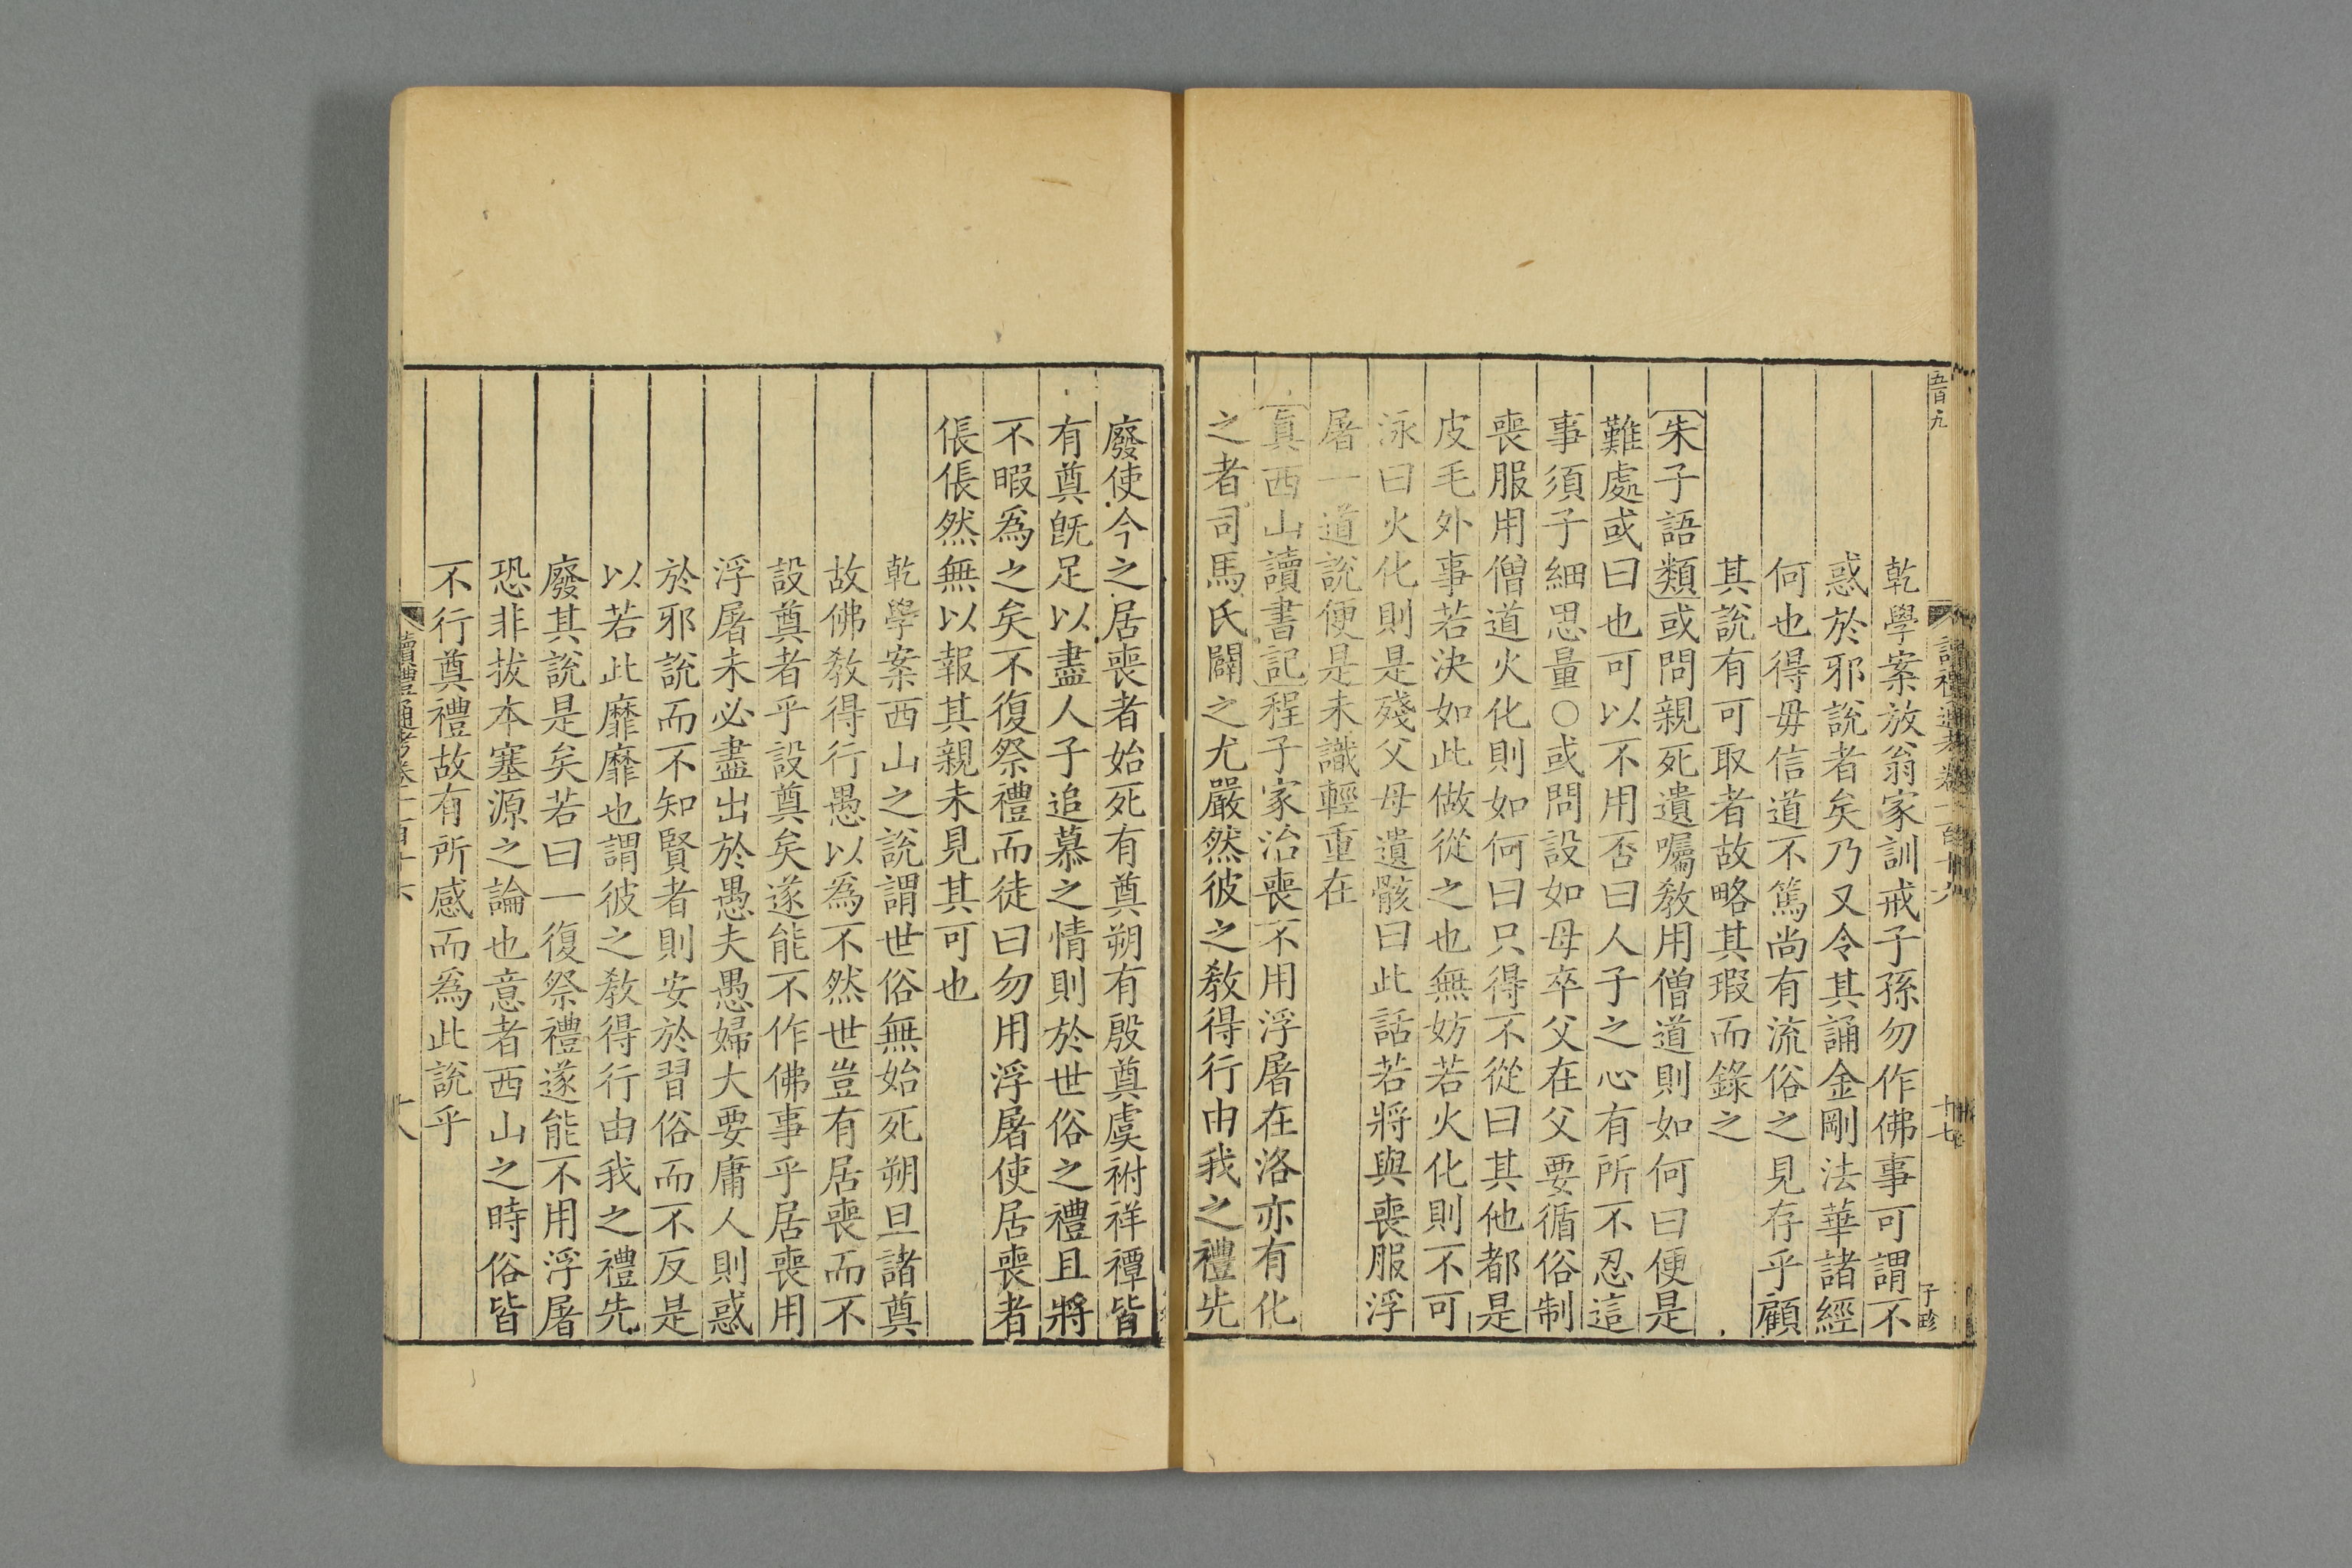 五百九
讀禮通考卷一百十六
十七
子珍
乾學案放翁家訓戒子孫勿作佛事可謂不
惑於邪說者矣乃又令其誦金剛法華諸經
何也得毋信道不篤尚有流俗之見存乎顧
其說有可取者故略其瑕而錄之
朱子語類或問親死遺囑敎用僧道則如何曰便是
難處或曰也可以不用否曰人子之心有所不忍這
事須子細思量○或問設如母卒父在父要循俗制
喪服用僧道火化則如何曰只得不從曰其他都是
皮毛外事若決如此做從之也無妨若火化則不可
泳曰火化則是殘父母遺骸曰此話若將與喪服浮
屠一道說便是未識輕重在
眞西山讀書記程子家治喪不用浮屠在洛亦有化
之者司馬氏闢之尤嚴然彼之敎得行由我之禮先
廢使今之居喪者始死有奠朔有殷奠虞祔祥禫皆
有奠旣足以盡人子追慕之情則於世俗之禮且將
不暇爲之矣不復祭禮而徒曰勿用浮屠使居喪者
倀倀然無以報其親未見其可也
乾學案西山之說謂世俗無始死朔旦諸奠
故佛敎得行愚以爲不然世豈有居喪而不
設奠者乎設奠矣遂能不作佛事乎居喪用
浮屠未必盡出於愚夫愚婦大要庸人則惑
於邪說而不知賢者則安於習俗而不反是
以若此靡靡也謂彼之敎得行由我之禮先
廢其說是矣若曰一復祭禮遂能不用浮屠
恐非拔本塞源之論也意者西山之時俗皆
不行奠禮故有所感而爲此說乎
讀禮通考卷一百十六
十八